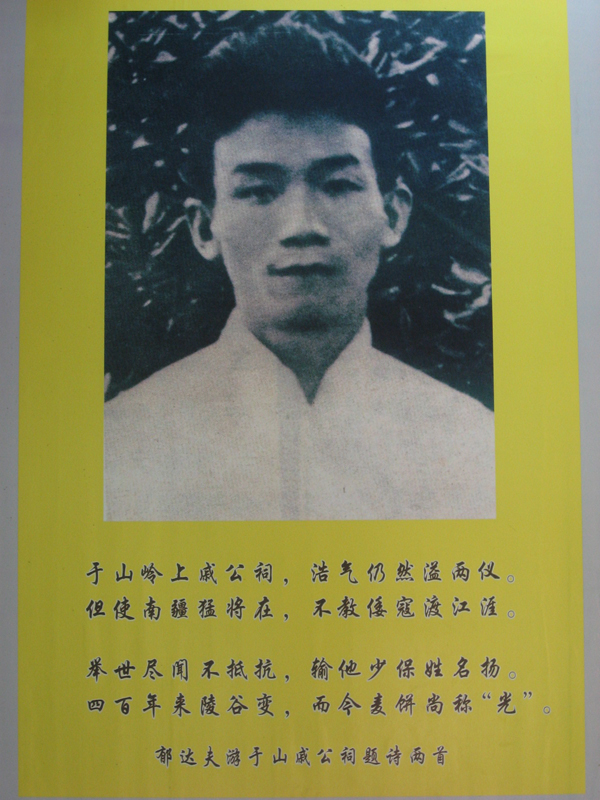 于山岭上戚公祠，浩气仍然溢两仪。
但使南疆猛将在，不教倭寇渡江涯。
举世尽闻不抵抗，输他少保姓名扬。
四百年来陵谷变，而今麦饼尚称“光”。
郁达夫游于山戚公祠题诗两首